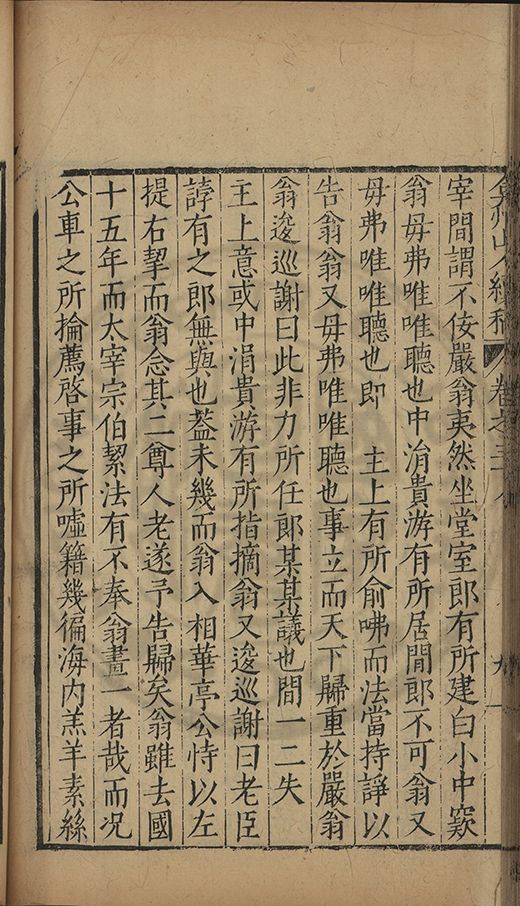 弇州山人續稿 卷之三八 九
宰間謂不佞嚴翁夷然坐堂室郎有所建白小中窽
翁毋弗唯唯聽也中涓貴游有所居間郎不可翁又
毋弗唯唯聽也即　主上有所俞咈而法當持諍以
告翁翁又毋弗唯唯聽也事立而天下歸重於嚴翁
翁逡巡謝曰此非力所任郎某某議也間一二失
主上意或中涓貴游有所指摘翁又逡巡謝曰老臣
誖有之郎無與也葢未幾而翁入相華亭公恃以左
提右挈而翁念其二尊人老遂予告歸矣翁雖去國
十五年而太宰宗伯絜法有不奉翁畫一者哉而况
公車之所掄薦啓事之所噓籍幾徧海内羔羊素絲